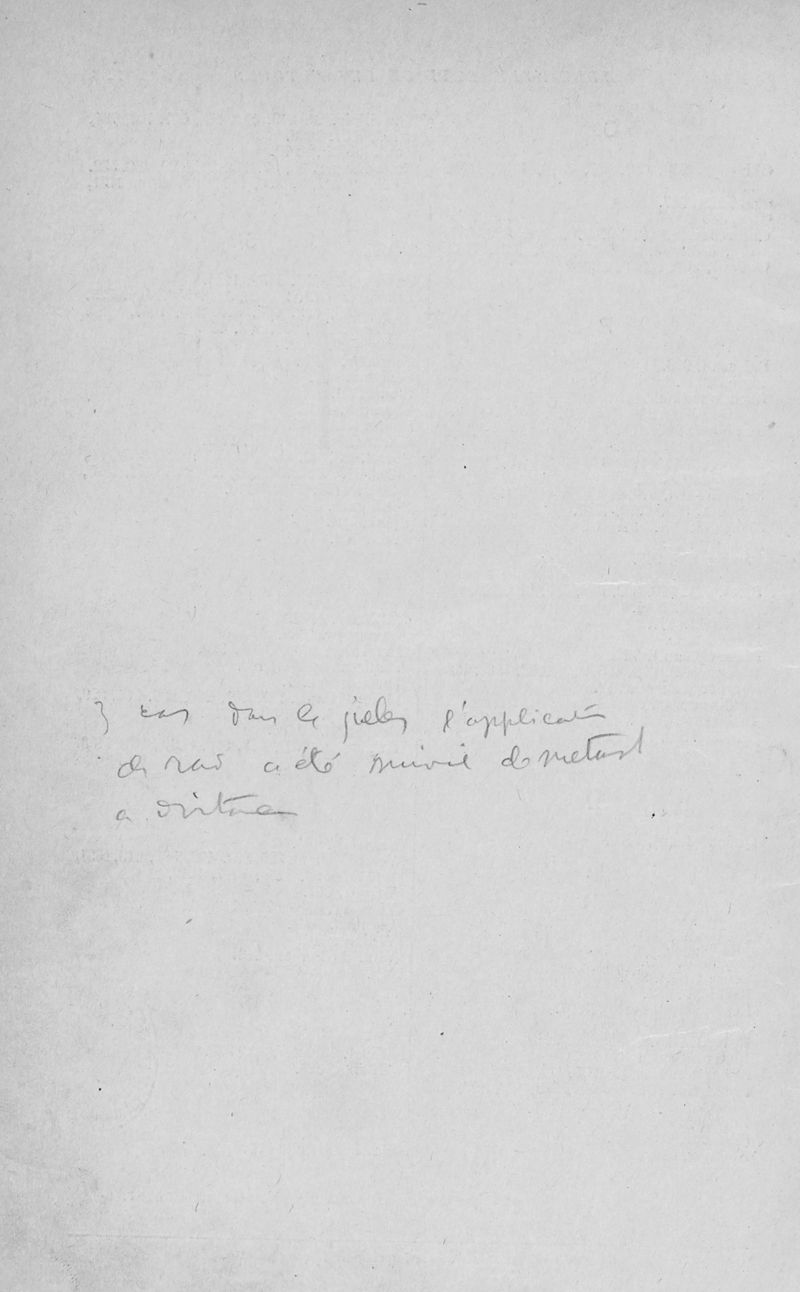 3 cas dans lesquels l'applicati
de rad a été suivie de metast
a distance